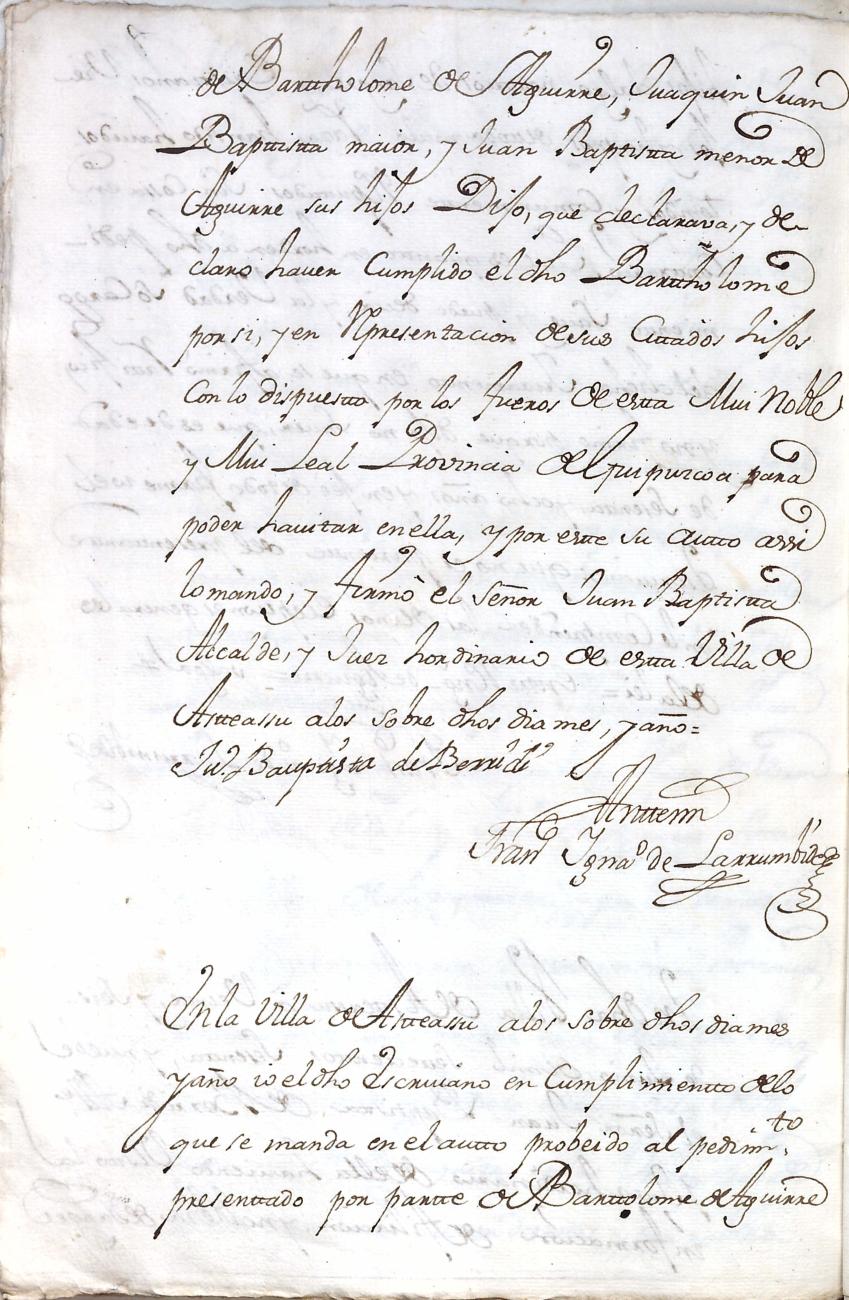 de Bartholome de Aguirre, Juaquin Juan
Baptistta maior, y Juan Baptistta menor de
Aguirre sus hisos Diso, que declarava, y de-
claro haver Cumplido el dho Barttholome
por si, y en Representacion de sus Cittados hisos
Con lo dispuestto por los fueros de estta Mui Noble
y Mui Leal Provincia de Guipuzcoa para
poder havitar en ella, y por este su autto assi
lo mando, y firmó el Señor Juan Baptistta
Alcalde, y Juez hordinario de estta Villa de
Astteassu a los sobre dhos dia mes, y año=
Ju.º Bauptista de Berridi
Anttemi
Fran.co Igna.º de Larrumbide
En la Villa de Astteassu a los sobre dhos dia mes
y año io el dho Escruivano en Cumplimientto de lo
que se manda en el autto probeido al pedim.to
presenttado por partte de Barttolome de Aguirre